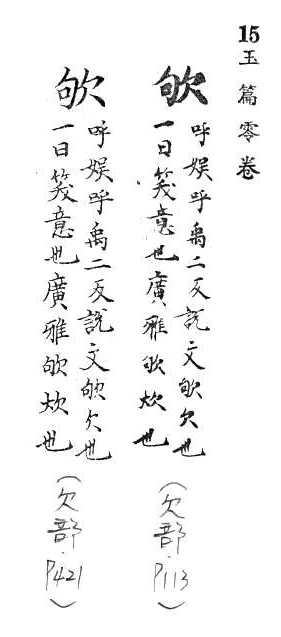 15玉篇零卷
欨
呼娛呼禹二反說文欨欠也
一曰笑意也廣雅欨炊也
(欠部.P113)
欨
呼娛呼禹二反說文欨欠也
一曰笑意也廣雅欨炊也
(欠部.P421)